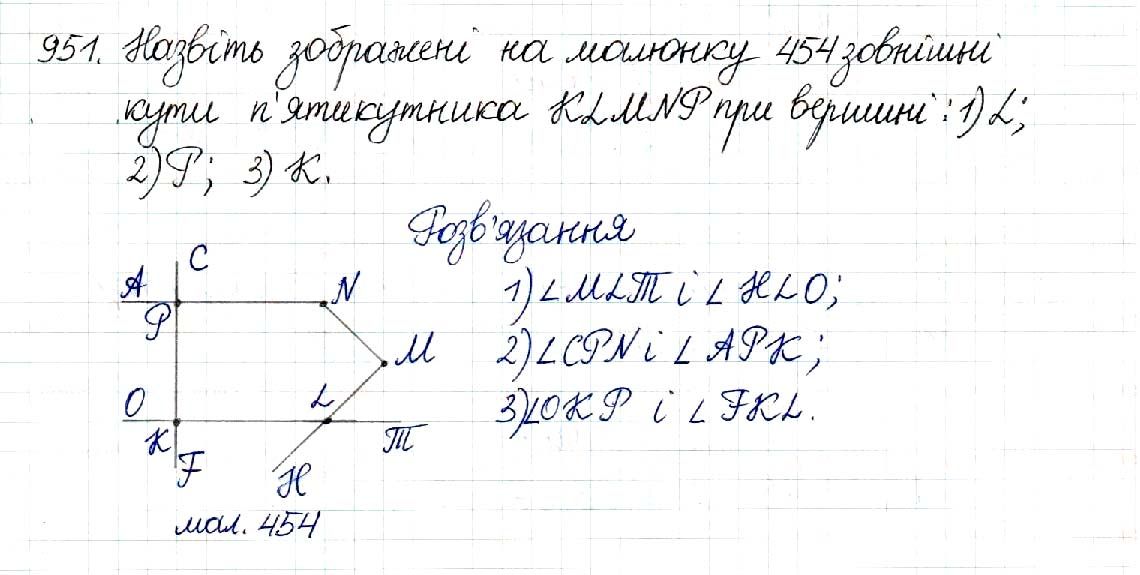 951. Назвіть зображені на малюнку 454 зовнішні
кути п'ятикутника KLMNP при вершині: 1) L;
2) P; 3) K.
Розв'язання
C
A
N
P
M
O
L
K
T
F
H
мал. 454
1) ∠MLT і ∠HLO;
2) ∠CPN і ∠APK;
3) ∠OKP і ∠FKL.